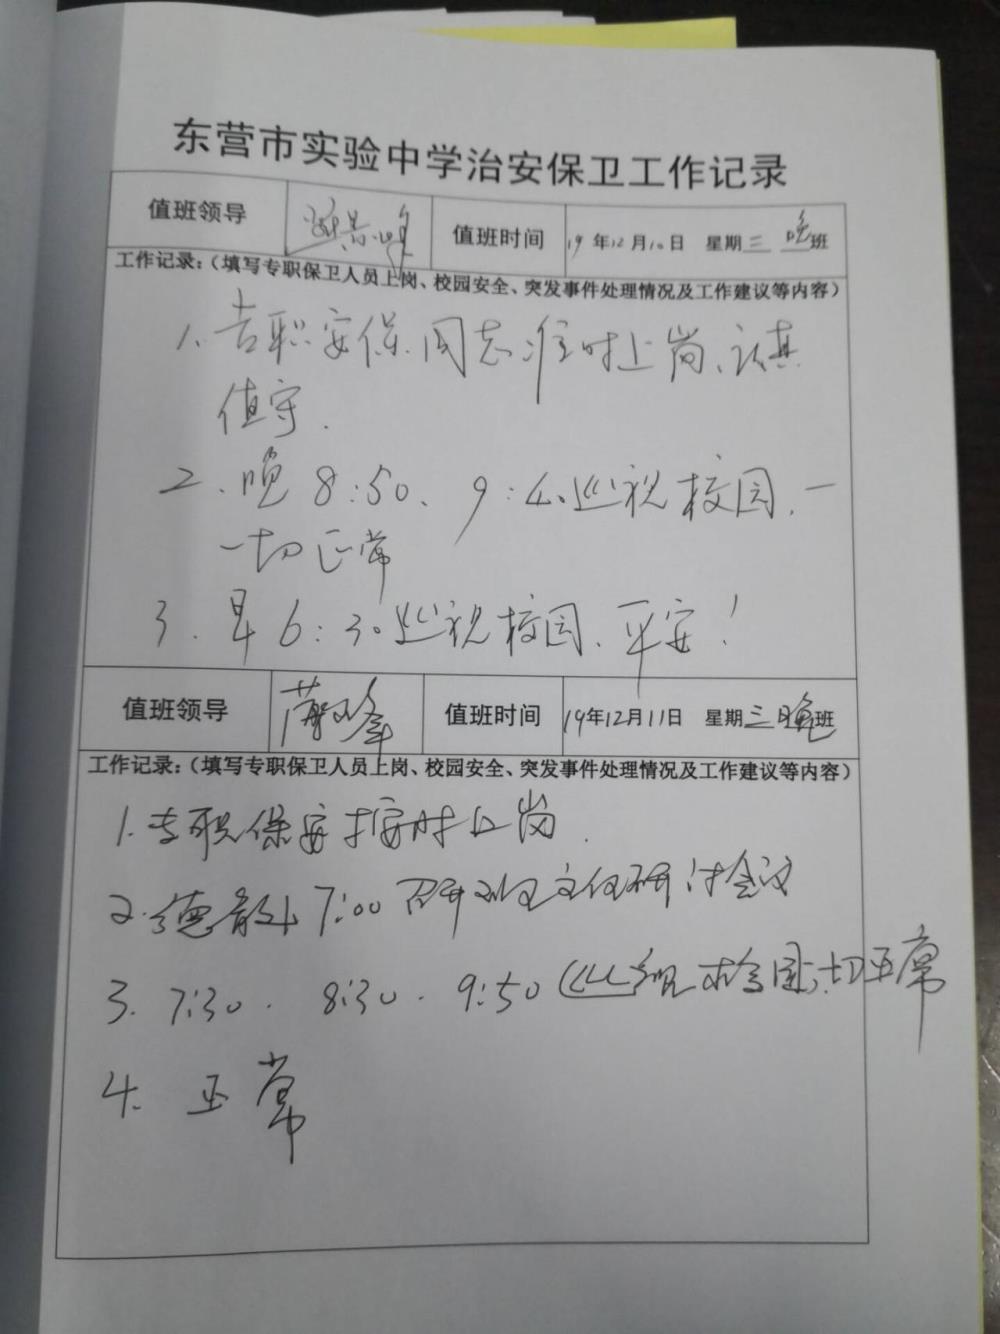 东营市实验中学治安保卫工作记录
值班领导 值班时间 19年12月10日 星期三 晚班
工作记录:(填写专职保卫人员上岗、校园安全、突发事件处理情况及工作建议等内容)
1、专职安保同志准时上岗、认真
值守.
2、晚8:50、9:40巡视校园、一
一切正常
3、早6:30巡视校园、平安!
值班领导 值班时间 19年12月11日 星期三晚班
工作记录:(填写专职保卫人员上岗、校园安全、突发事件处理情况及工作建议等内容)
1.专职保安按时上岗.
2.德教处7:00召开班主任研讨会议
3.7:30.8:30.9:50巡视校园,一切正常
4.正常